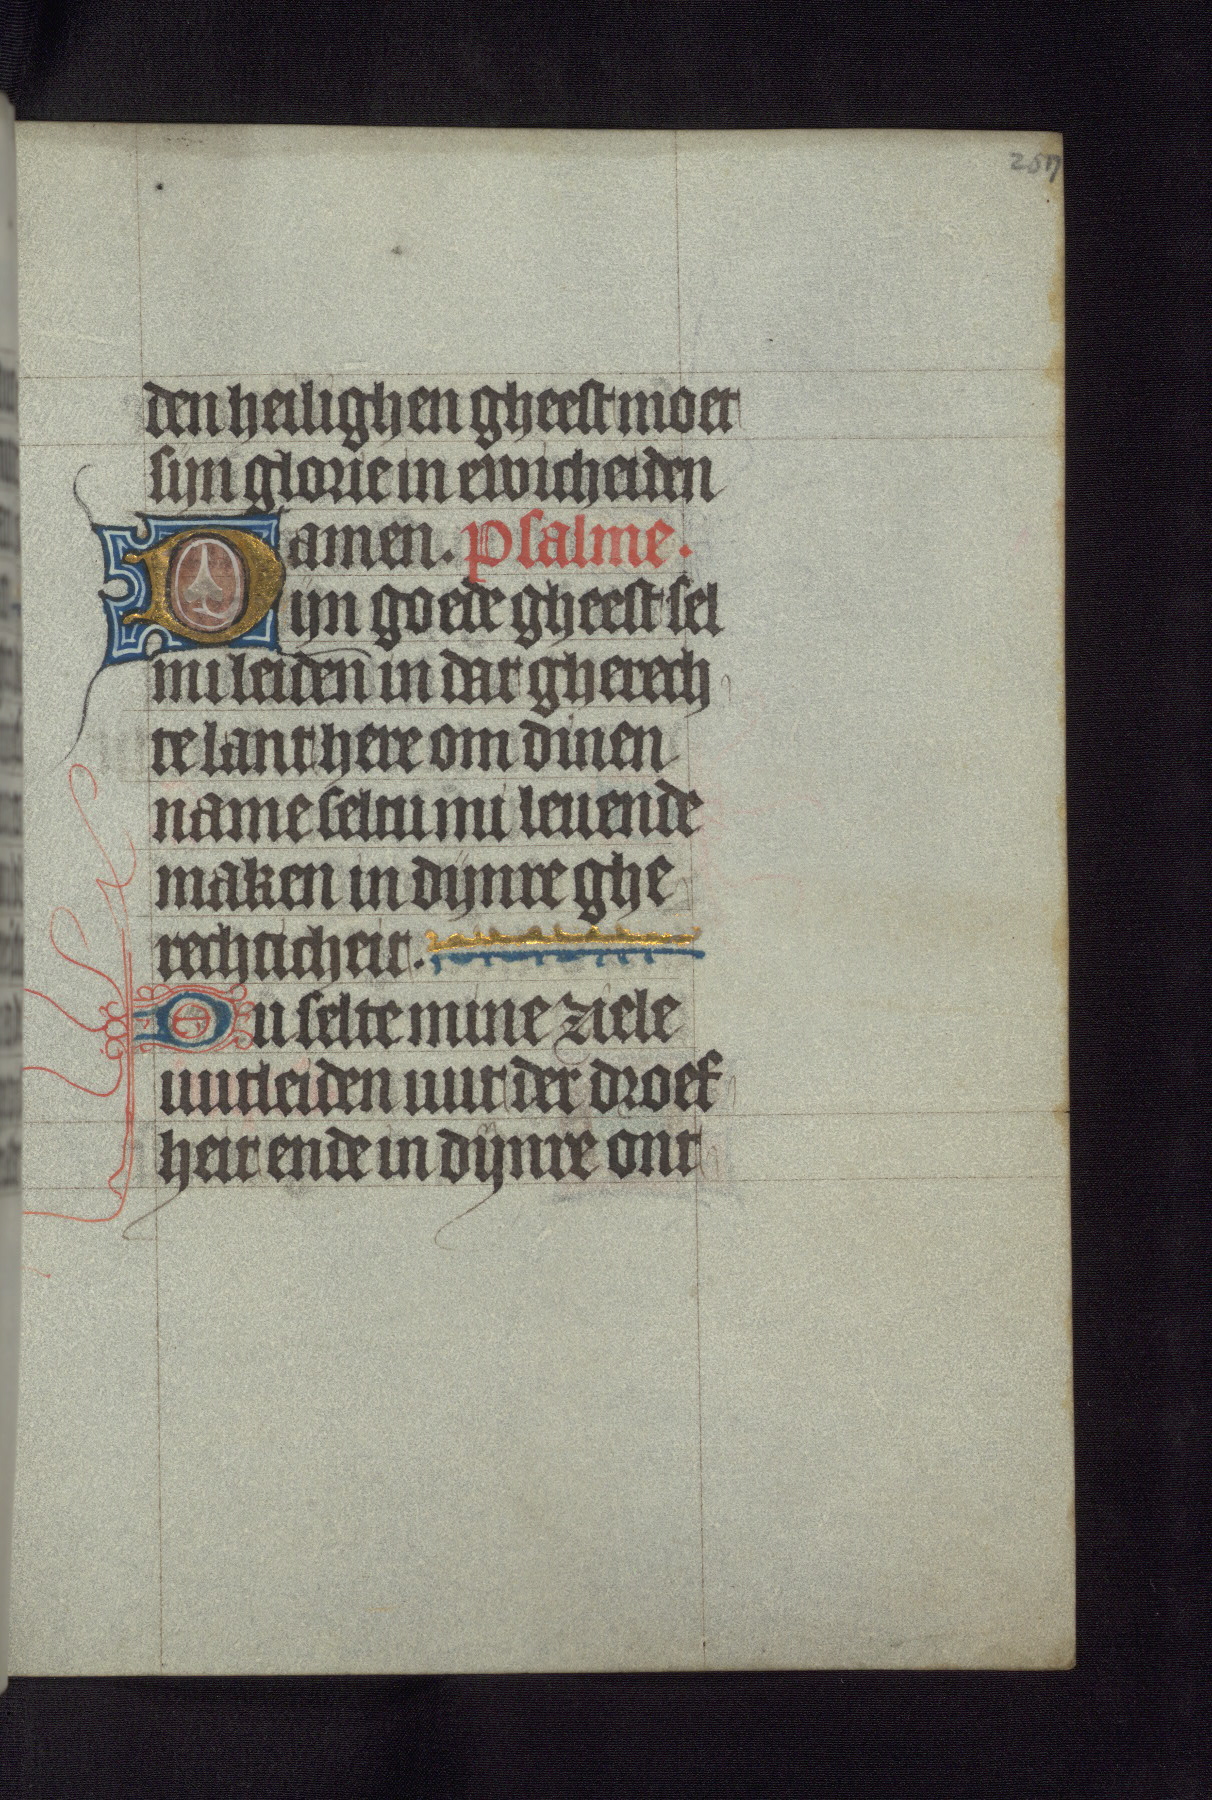 257
den heilighen gheest moet
sijn glorie in ewicheiden
amen. psalme.
Dijn goede gheest sel
mi leiden in dat gherech
te lant here om dinen
name seltu mi leuende
maken in dijnre ghe
rechticheit.
Du selte mine ziele
uutleiden uut der droef
heit ende in dijnre ont